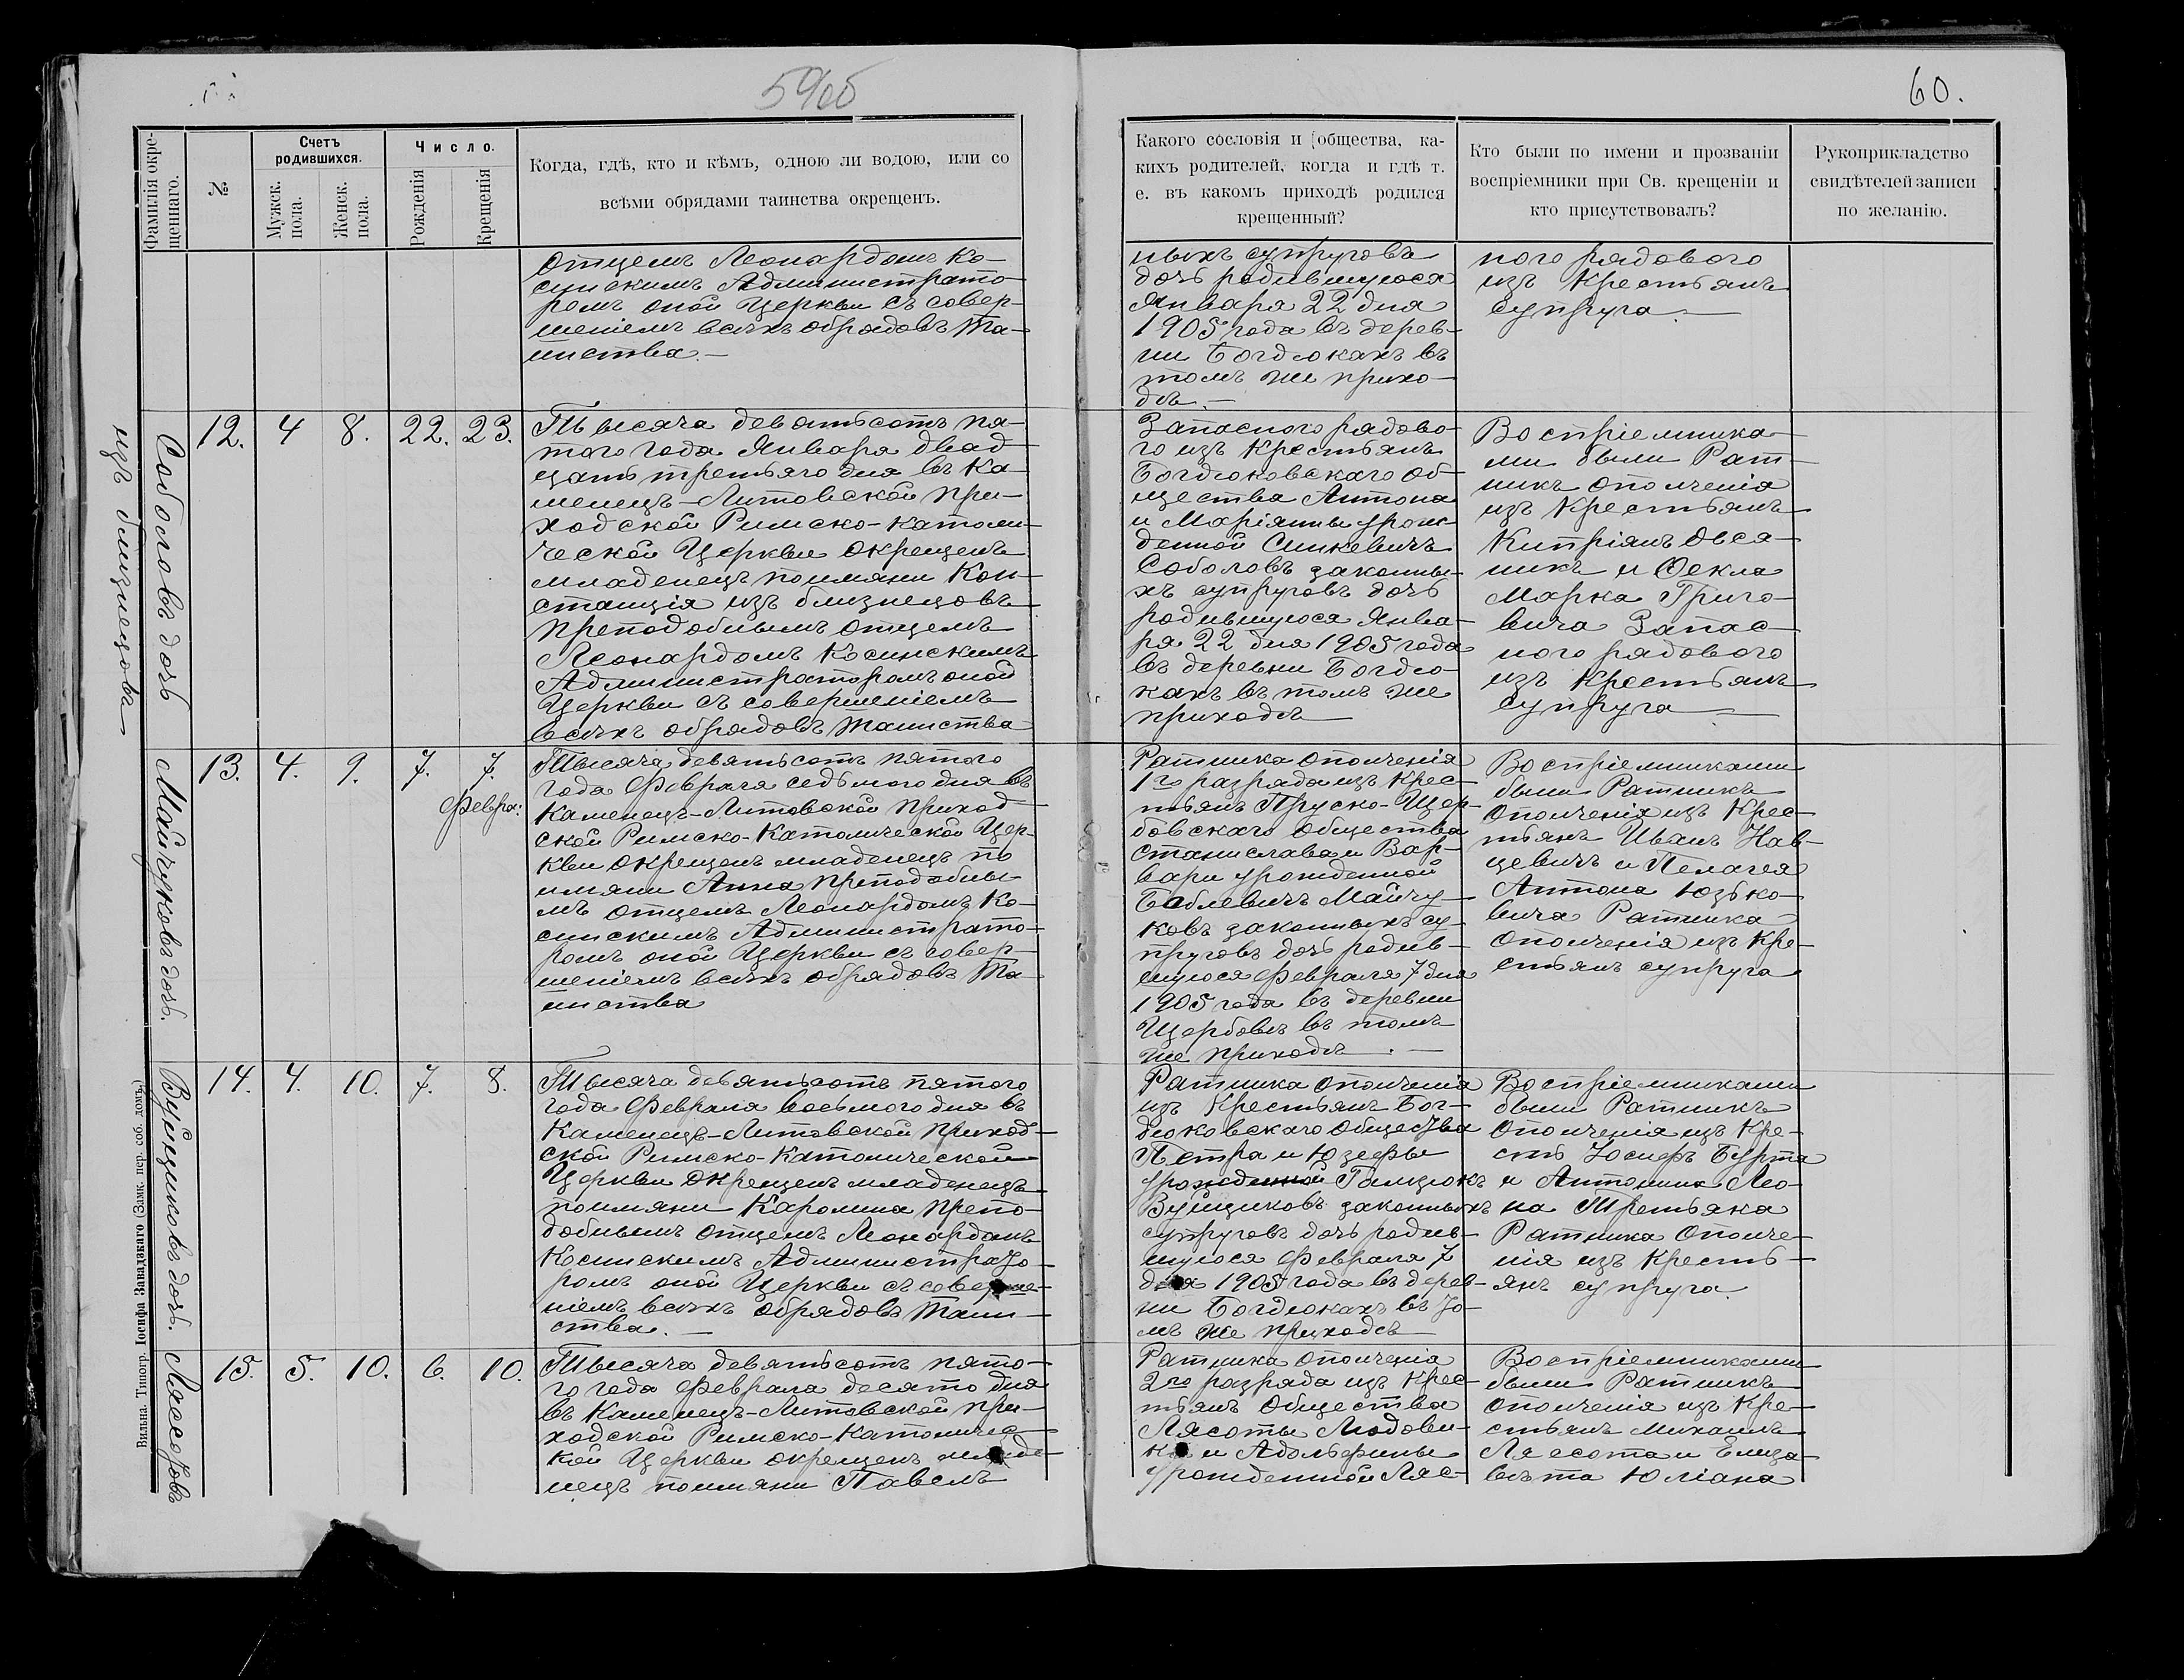 59об
60.
Фамилія окре-
щеннаго.
№
Счетъ
родившихся.
Мужск.
пола.
Женск.
пола.
Число.
Рожденія
Крещенія
Когда, гдѣ, кто и кѣмъ, одною ли водою, или со
всѣми обрядами таинства окрещенъ.
Какого сословія и общества, ка-
кихъ родителей, когда и гдѣ т.
е. въ какомъ приходѣ родился
крещенный?
Кто были по имени и прозванію
воспріемники при Св. крещеніи и
кто присутствовалъ?
Рукоприкладство
свидѣтелей записи
по желанію.
Отцемъ Леонардомъ Ко-
синскимъ Администрато-
ромъ оной Церкви съ совер-
шеніемъ всѣхъ обрядовъ Та-
инства.—
ныхъ супруговъ
дочь родившуюся
Января 22 дня
1905 года въ дерев-
ни Богдюкахъ въ
томъ же прихо-
дѣ.—
ного рядового
изъ Крестьянъ
супруга.—
Соболовъ дочь
изъ близнецовъ
12. 4 8. 22. 23.
Тысяча девятьсотъ пя-
того года Января двад-
цать третьяго дня въ Ка-
менецъ-Литовской При-
ходской Римско-Католи-
ческой Церкви окрещенъ
младенецъ поимяни Кон-
станція изъ близнецовъ
преподобнымъ отцемъ
Леонардомъ Косинскимъ
Администраторомъ оной
Церкви съ совершеніемъ
всѣхъ обрядовъ Таинства
Запасного рядово-
го изъ Крестьянъ
Богдюковскаго об-
щества Антона
и Маріянны урож-
денной Синкевичъ
Соболовъ законны-
хъ супруговъ дочь
родившуюся Янва-
ря 22 дня 1905 года
въ деревни Богдю-
кахъ въ томъ же
приходѣ—
Воспріемника-
ми были Рат-
никъ ополченія
изъ Крестьянъ
Кипріянъ Овся-
никъ и Ѳекла
Марка Григо-
вича Запас-
ного рядового
изъ Крестьянъ
супруга—
Майчуковъ дочь.
13. 4. 9. 7. 7.
Февра:
Тысяча девятьсотъ пятого
года Февраля седьмого дня въ
Каменецъ-Литовской приход-
ской Римско-Католической Цер-
кви окрещенъ младенецъ по
имяни Анна преподобны-
мъ отцемъ Леонардомъ Ко-
синскимъ Администрато-
ромъ оной Церкви съ совер-
шеніемъ всѣхъ обрядовъ Та-
инства
Ратника ополченія
1го разряда изъ Крес-
тьянъ Пруско-Щер-
бовскаго Общества
Станислава и Вар-
вары урожденной
Баблевичъ Майчу-
ковъ законныхъ су-
пруговъ дочь родив-
шуюся Февраля 7 дня
1905 года въ деревни
Щербовѣ въ томъ
же приходѣ.—
Воспріемниками
были Ратникъ
Ополченія изъ Крес-
тьянъ Иванъ Нав-
цевичъ и Пелагея
Антона Юзько-
вича Ратника
Ополченія изъ Кре-
стьянъ супруга
Вуйциковъ дочь.
14. 4. 10. 7. 8.
Тысяча девятьсотъ пятого
года Февраля восьмого дня въ
Каменецъ-Литовской приход-
ской Римско-Католической
Церкви окрещенъ младенецъ
поимяни Каролина препо-
добнымъ отцемъ Леонардомъ
Косинскимъ Администрато-
ромъ оной Церкви съ соверше-
ніемъ всѣхъ обрядовъ Таин-
ства.—
Ратника ополченія
изъ Крестьянъ Бог-
дюковскаго Общества
Петра и Юзефы
урожденной Галицюкъ
Вуйциковъ законныхъ
супруговъ дочь родив-
шуюся Февраля 7
дня 1905 года въ дерев-
ни Богдюкахъ въ то-
мъ же приходѣ—
Воспріемниками
были Ратникъ
Ополченія изъ Кре-
стъ Іосифъ Бурта
и Антонина Лео-
на Третьяка
Ратника Ополче-
нія изъ Кресть-
янъ супруга.
Лясотовъ
15. 5. 10. 6. 10.
Тысяча девятьсотъ пято-
го года Февраля десято дня
въ Каменецъ-Литовской при-
ходской Римско-Католичес-
кой Церкви окрещенъ младе-
нецъ поимяни Павелъ
Ратника ополченія
2го разряда изъ Крес-
тьянъ Общества
Лясоты Людови-
ка и Адольфины
урожденной Ляс-
Воспріемниками
были Ратникъ
ополченія изъ Кре-
стьянъ Михаилъ
Лясота и Елиза-
вѣта Юліана
Вильна. Типогр. Іосифа Завадзкаго (Замк. пер. соб. домъ.)